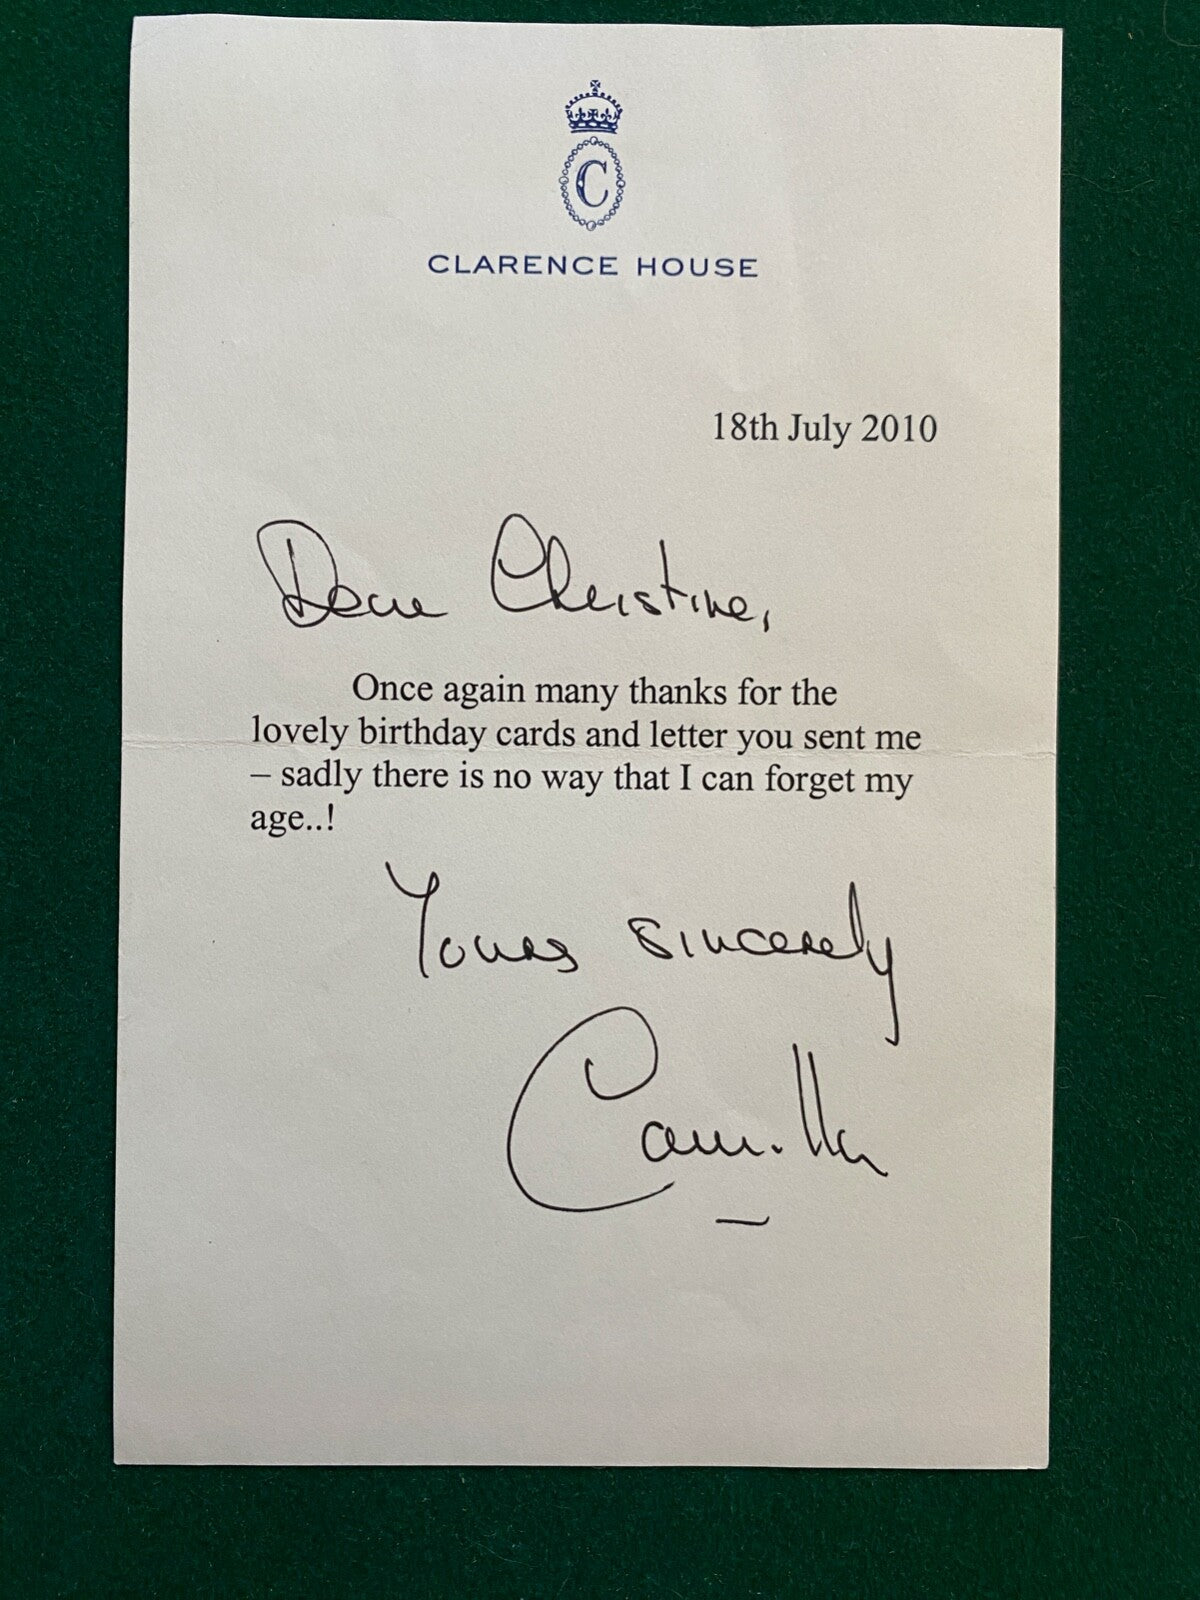 C
CLARENCE HOUSE
18th July 2010
Dear Christine,
Once again many thanks for the
lovely birthday cards and letter you sent me
– sadly there is no way that I can forget my
age..!
Yours sincerely
Camilla